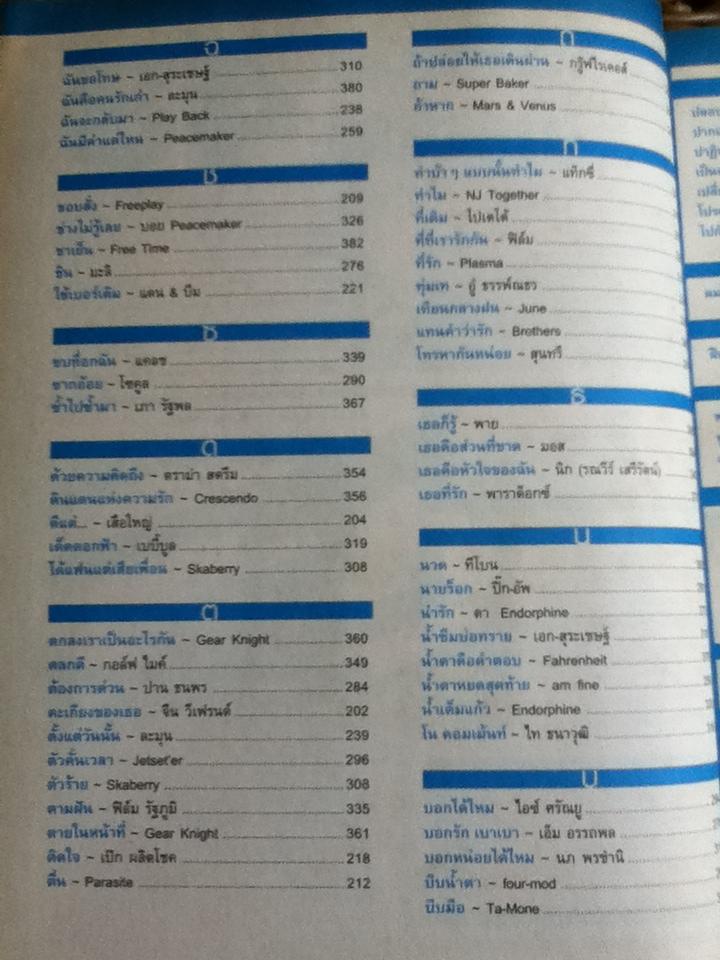 ฉ
ฉันขอโทษ ~ เอก-สุระเชษฐ์ 310
ฉันคือคนรักเก่า ~ ละมุน 380
ฉันจะกลับมา ~ Play Back 238
ฉันมีค่าแค่ไหน ~ Peacemaker 259
ช
ชอบสั่ง ~ Freeplay 209
ช่างไม่รู้เลย ~ บอย Peacemaker 326
ชาเย็น ~ Free Time 382
ชิน ~ มะลิ 276
ใช้เบอร์เดิม ~ แดน & บีม 221
ซ
ซบที่อกฉัน ~ แคลช 339
ซากอ้อย ~ โซคูล 290
ซ้ำไปซ้ำมา ~ เภา รัฐพล 367
ด
ด้วยความคิดถึง ~ ดราม่า สตรีม 354
ดินแดนแห่งความรัก ~ Crescendo 356
ดีแต่... ~ เสือใหญ่ 204
เด็ดดอกฟ้า ~ เบบี้บูล 319
ได้แฟนแต่เสียเพื่อน ~ Skaberry 308
ต
ตกลงเราเป็นอะไรกัน ~ Gear Knight 360
ตลกดี ~ กอล์ฟ ไมค์ 349
ต้องการด่วน ~ ปาน ธนพร 284
ตะเกียงของเธอ ~ จีน วีเฟรนด์ 202
ตั้งแต่วันนั้น ~ ละมุน 239
ตัวคั่นเวลา ~ Jetset'er 296
ตัวร้าย ~ Skaberry 308
ตามฝัน ~ ฟิล์ม รัฐภูมิ 335
ตายในหน้าที่ ~ Gear Knight 361
ติดใจ ~ เป๊ก ผลิตโชค 218
ตื่น ~ Parasite 212
ถ
ถ้าปล่อยให้เธอเดินผ่าน ~ กรู๊ฟไรเดอร์
ถาม ~ Super Baker
ถ้าหาก ~ Mars & Venus
ท
ทำบ้า ๆ แบบนั้นทำไม ~ แท็กซี่
ทำไม ~ NJ Together
ที่เดิม ~ ไปเตโต้
ที่ที่เรารักกัน ~ ฟิล์ม
ที่รัก ~ Plasma
ทุ่มเท ~ อู๋ ธรรพ์ณธร
เทียนกลางฝน ~ June
แทนคำว่ารัก ~ Brothers
โทรหากันหน่อย ~ สุนทรี
ธ
เธอก็รู้ ~ พาย
เธอคือส่วนที่ขาด ~ มอส
เธอคือหัวใจของฉัน ~ นิก (รณวีร์ เสรีรัตน์)
เธอที่รัก ~ พาราด็อกซ์
น
นวด ~ ทีโบน
นายร็อก ~ ปิ๊ก-อัพ
น่ารัก ~ ดา Endorphine
น้ำซึมบ่อทราย ~ เอก-สุระเชษฐ์
น้ำตาคือคำตอบ ~ Fahrenheit
น้ำตาหยดสุดท้าย ~ am fine
น้ำเต็มแก้ว ~ Endorphine
โน คอมเม้นท์ ~ ไท ธนาวุฒิ
บ
บอกได้ไหม ~ ไอซ์ ศรัณยู
บอกรัก เบาเบา ~ เอ็ม อรรถพล
บอกหน่อยได้ไหม ~ นภ พรชำนิ
บีบน้ำตา ~ four-mod
บีบมือ ~ Ta-Mone